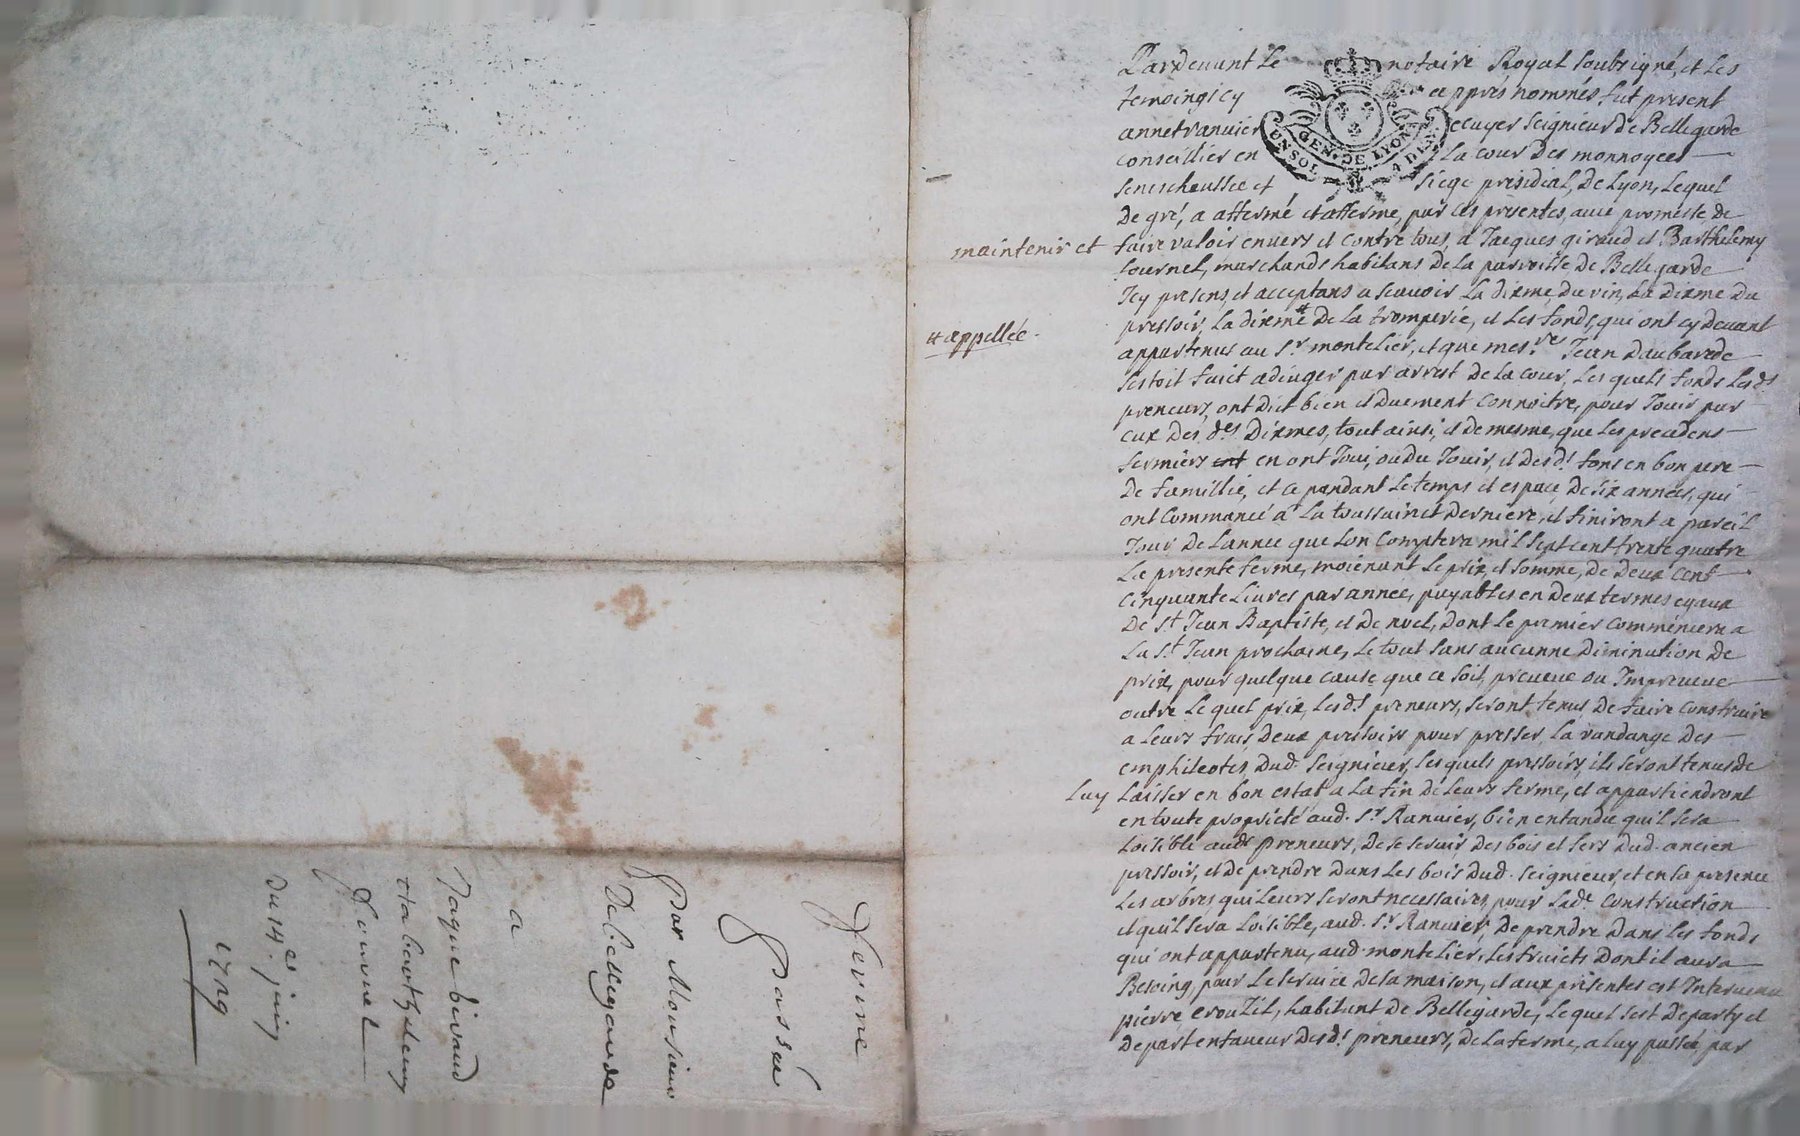 Pardevant le notaire Royal soubsigné, et les
temoings cy ce apprés nommés fut present
annet ranvier ecuyer seignieur de Bellegarde
conseillier en la cour des monnoyees
seneschaussee et siege presidial, de Lyon, lequel
de gré, a affermé et afferme, par ces presentes, avec promesse de
maintenir et faire valoir envers et contre tous, a Jacques giraud et Barthelemy
fournel, marchands habitans de la parroisse de Bellegarde
Icy presens, et acceptans a scavoir la dixme du vin, la dixme du
pressoir, la dixme # de la tromperie, et les fonds, qui ont cy devant
# appellée.
appartenus au Sr. montelier, et que mes.re Jean Daubarede
sestoit faict adiuger par arrest de la cour, les quels fonds lesds
preneurs, ont dict bien et duement connoitre, pour Jouir par
eux des, des. dixmes, tout ainsi, et de mesme, que les precedens
fermiers ont en ont Joui, ou du Jouir, et desd. fons en bon pere
de famillie, et ce pandant le temps et espace de six années, qui
ont commancé a la toussainct derniere, et finiront a pareil
Jour de l'annee que lon comptera mil sept cent trente quatre
la presente ferme, moienant le prix, et somme, de deux cent
cinquante livres par annee, payables en deux termes egaux
de St. Jean Baptiste, et de noel, dont le premier commencera a
la St. Jean prochaine, le tout sans aucunne diminution de
prix, pour quelque cause que ce soit, preveue ou Impreveue
outre le quel prix, lesd. preneurs, seront tenus de faire construire
a leurs frais, deux pressoirs pour presser la vandange des
emphiteotes, dud. seignieur, les quels pressoirs, ils seront tenus de
luy laisser en bon estat a la fin de leurs ferme, et appartiendront
en toute proprieté aud. Sr. Ranvier, bien entandu qu'il sera
loisible auds preneurs, de se servir des bois et fers dud. ancien
pressoir, et de prendre dans les bois dud. seignieur, et en sa presence
les arbres qui leurs seront necessaires, pour lade. construction
et qu'il sera loisible, aud. Sr. Ranvier, de prendre dans les fonds
qui ont appartenu, aud. montelier, les fruicts dont il aura
Besoing, pour le service de sa maison, et aux présentes est Intervenu
pierre crouzil, habitant de Bellegarde, le quel sest departy et
depart en faveur desd. preneurs, de la ferme, a luy passée, par
GEN. DE LYON
ferme
passée
par Monsieur
De bellegarde
a
Jaque Giraud
et a barthelemy
fournel
du 14e. juin
1729